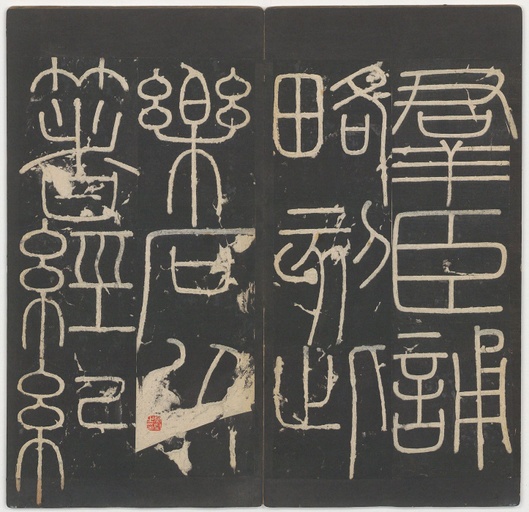 羣臣誦
略刻此
樂石以
箸經紀